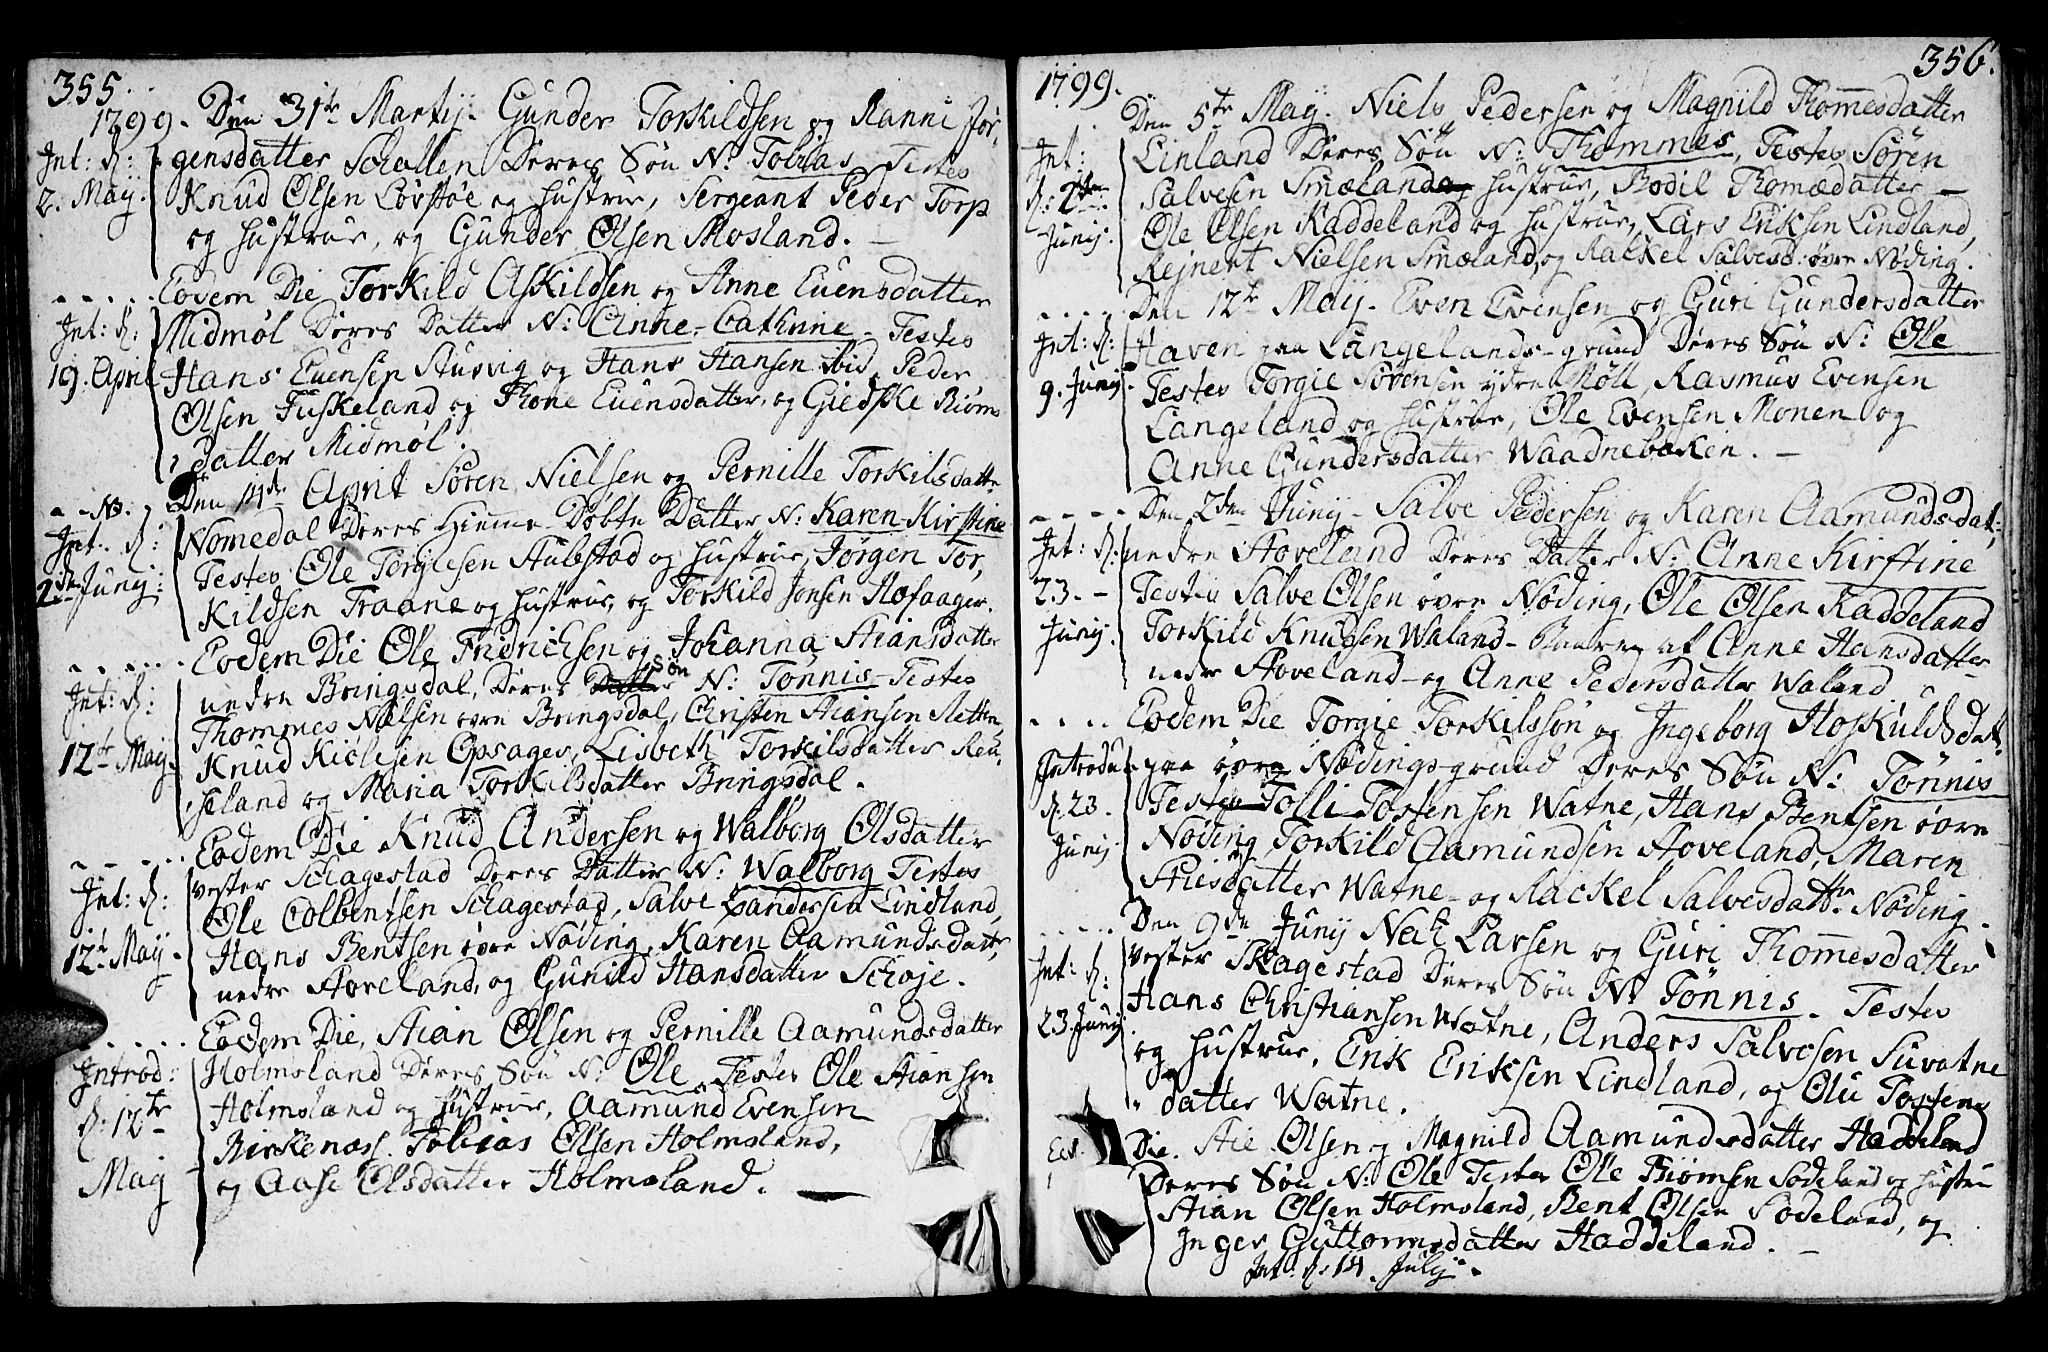 355.
1799. Den 31te Martij. Gunder Torkildsen og Ranni Jør,
Int: d: gensdatter Schallen Deres Søn N: Tobias Testes
2. Maij. Knud Olsen Løvstøe og Hustrue, Sergeant Peder Torp
og Hustrue, og Gunder Olsen Mosland.
Eodem Die Torkild Askildsen og Anne Evensdatter
Int: d: Midmøl Deres Datter N: Anne-Cathrine - Testes
19. April Hans Evensen og Hans Hansen ibid, Peder
Olsen Fuskeland og Thone Evensdatter, og Giedske Biørns
datter Midmøl.
Den 14de April Søren Nielsen og Pernille Torkilsdatte
Int: d: Nomedal Deres Hiemme-Døbte Datter N: Karen-Kirstine
2den Junij: Testes Ole Torgiesen Aubstad og Hustrue, Jørgen Tor,
kildsen Traane og Hustrue, og Torkild Jonsen Hofaager.
Eodem Die Ole Fridrichsen og Johanna Stiansdatter
Int: d: nedre Bringsdal, Deres Datter Søn N: Tønnis - Testes
Thommes Nielsen øvre Bringsdal, Christen Stiansen
12te Maij. Knud Kiølesen Opsager, Lisbeth Torkilsdatter Reu,
sæland og Maria Torkilsdatter Bringsdal.
Eodem Die Knud Andersen og Walborg Olsdatter
Int: d: vester Schagestad Deres Datter N: Walborg Testes
Ole Colbentsen Schagestad, Salve Zandersen Lindland,
12te May. Hans Bentsen øvre Nøding, Karen Aamundsdatter
nedre Stoveland, og Gunild Hansdatter Schøje.
Eodem Die, Stian Olsen og Pernille Aamundsdatter
Introd: Holmsland Deres Søn N: Ole, Testes Ole Stiansen
d: 12te Holmsland og Hustrue, Aamund Evensen
Birkenæs. Tobias Olsen Holmsland,
Maij og Aase Olsdatter Holmsland.
1799. 356.
Den 5te Maij. Niels Pedersen og Magnild Thommesdatter
Int: Linland Deres Søn N: Thommes, Testes Søren
d: 2den Salvesen Smæland og Hustrue, Bodil Thomædatter
Junij. Ole Olsen Kaddeland og Hustrue, Lars Eriksen Lindland,
Rejnert Nielsen Smæland, og Rackel Salvesd: øvre Nøding.
Den 12te Maij. Even Evensen og Guri Gundersdatter
Int: d: Haven paa Langelands-grund Deres Søn N: Ole
9. Junij Testes Torgie Sørensen ydre Møll, Rasmus Evensen
Langeland og Hustrue, Ole Evensen Monen og
Anne Gundersdatter Waadnebæken.
Den 2den Junij Salve Pedersen og Karen Aamundsdat:
Int: d: nedre Stoveland Deres Datter N: Anne Kirstine
23. Testes Salve Olsen øvre Nøding, Ole Olsen Kaddeland
Junij. Torkild Knudsen Waland - Baaren af Anne Hansdatter
nedre Stoveland - og Anne Pedersdatter Waland
Eodem Die Torgie Torkilssøn og Ingeborg Hoskuldsdat:
Introdu: paa øvre Nødings-grund Deres Søn N: Tønnis
d: 23. Testes Tolli Tostensen Watne, Hans Bentsen øvre
Junij Nøding Torkild Aamundsen Stoveland, Maren
Stiesdatter Watne - og Rackel Salvesdatter Nøding.
Den 9de Junij Larsen og Guri Thommesdatter
Int: d: vester Skagestad Deres Søn N: Tønnis. Testes
23. Junij Hans Christiansen Watne, Anders Salvesen Suvatne
og Hustrue, Erik Eriksen Lindland, og Olu Tostens
datter Watne.
Eod. Die. Stie Olsen og Magnild Aamundsdatter Haddeland
Deres Søn N: Ole Testes Ole Biørnsen Sodeland og Hustru
Stian Olsen Holmsland, Bent Olsen Sodeland, og
Inger Guttormsdatter Haddeland.
Int: d: 14. Julij.